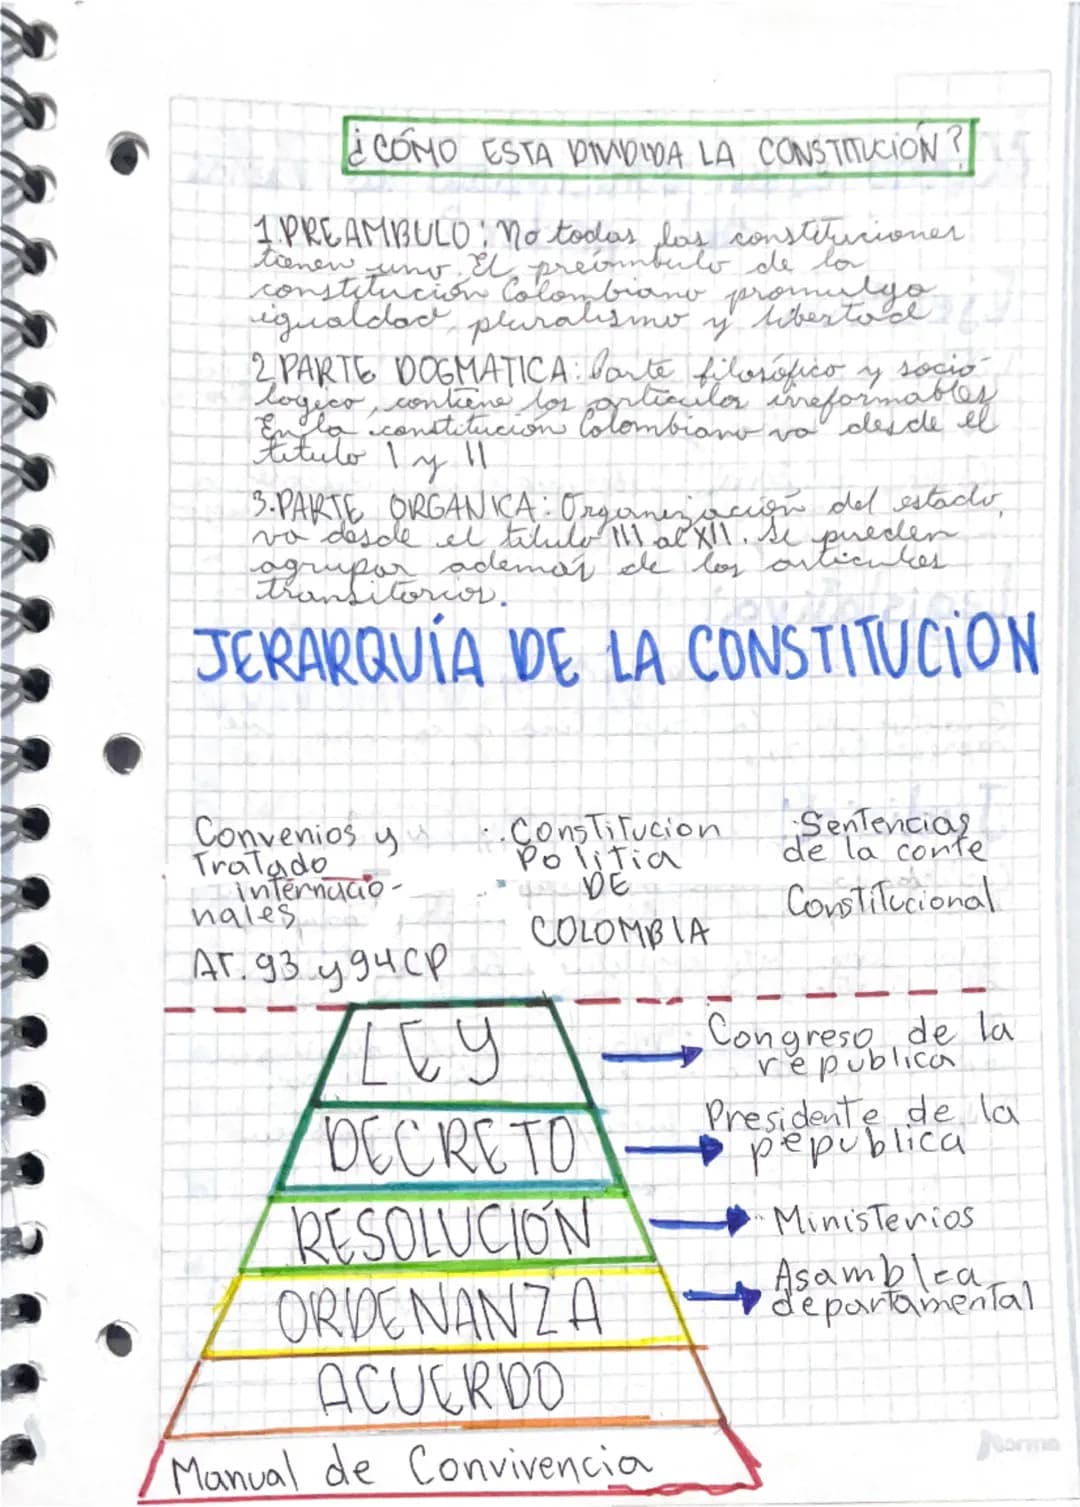 ¿CÓMO ESTA DIVIDIDA LA CONSTITUCIÓN?
1.PREAMBULO: No todas las constituciones
tienen uno. El preámbulo de la
constitución Colombiana promulga
igualdad, pluralismo y libertad
2.PARTE DOGMATICA: Parte filosófico y socio-
logico, contiene los articulos irreformables
En la constitución Colombiana va desde el
titulo I y II
3.PARTE ORGANICA: Organización del estado,
va desde el titulo III al XII. Se pueden
agrupar además de los articulos
transitorios.
JERARQUÍA DE LA CONSTITUCIÓN
Convenios y
Tratado
internacio-
nales
Ar. 93 y 94 CP
Constitucion
Politia
DE
COLOMBIA
Sentencias
de la corte
Constitucional
LEY
Congreso de la
republica
DECRETO
Presidente de la
pepublica
RESOLUCIÓN
Ministerios
ORDENANZA
Asamblea
departamental
ACUERDO
Manual de Convivencia
Norma